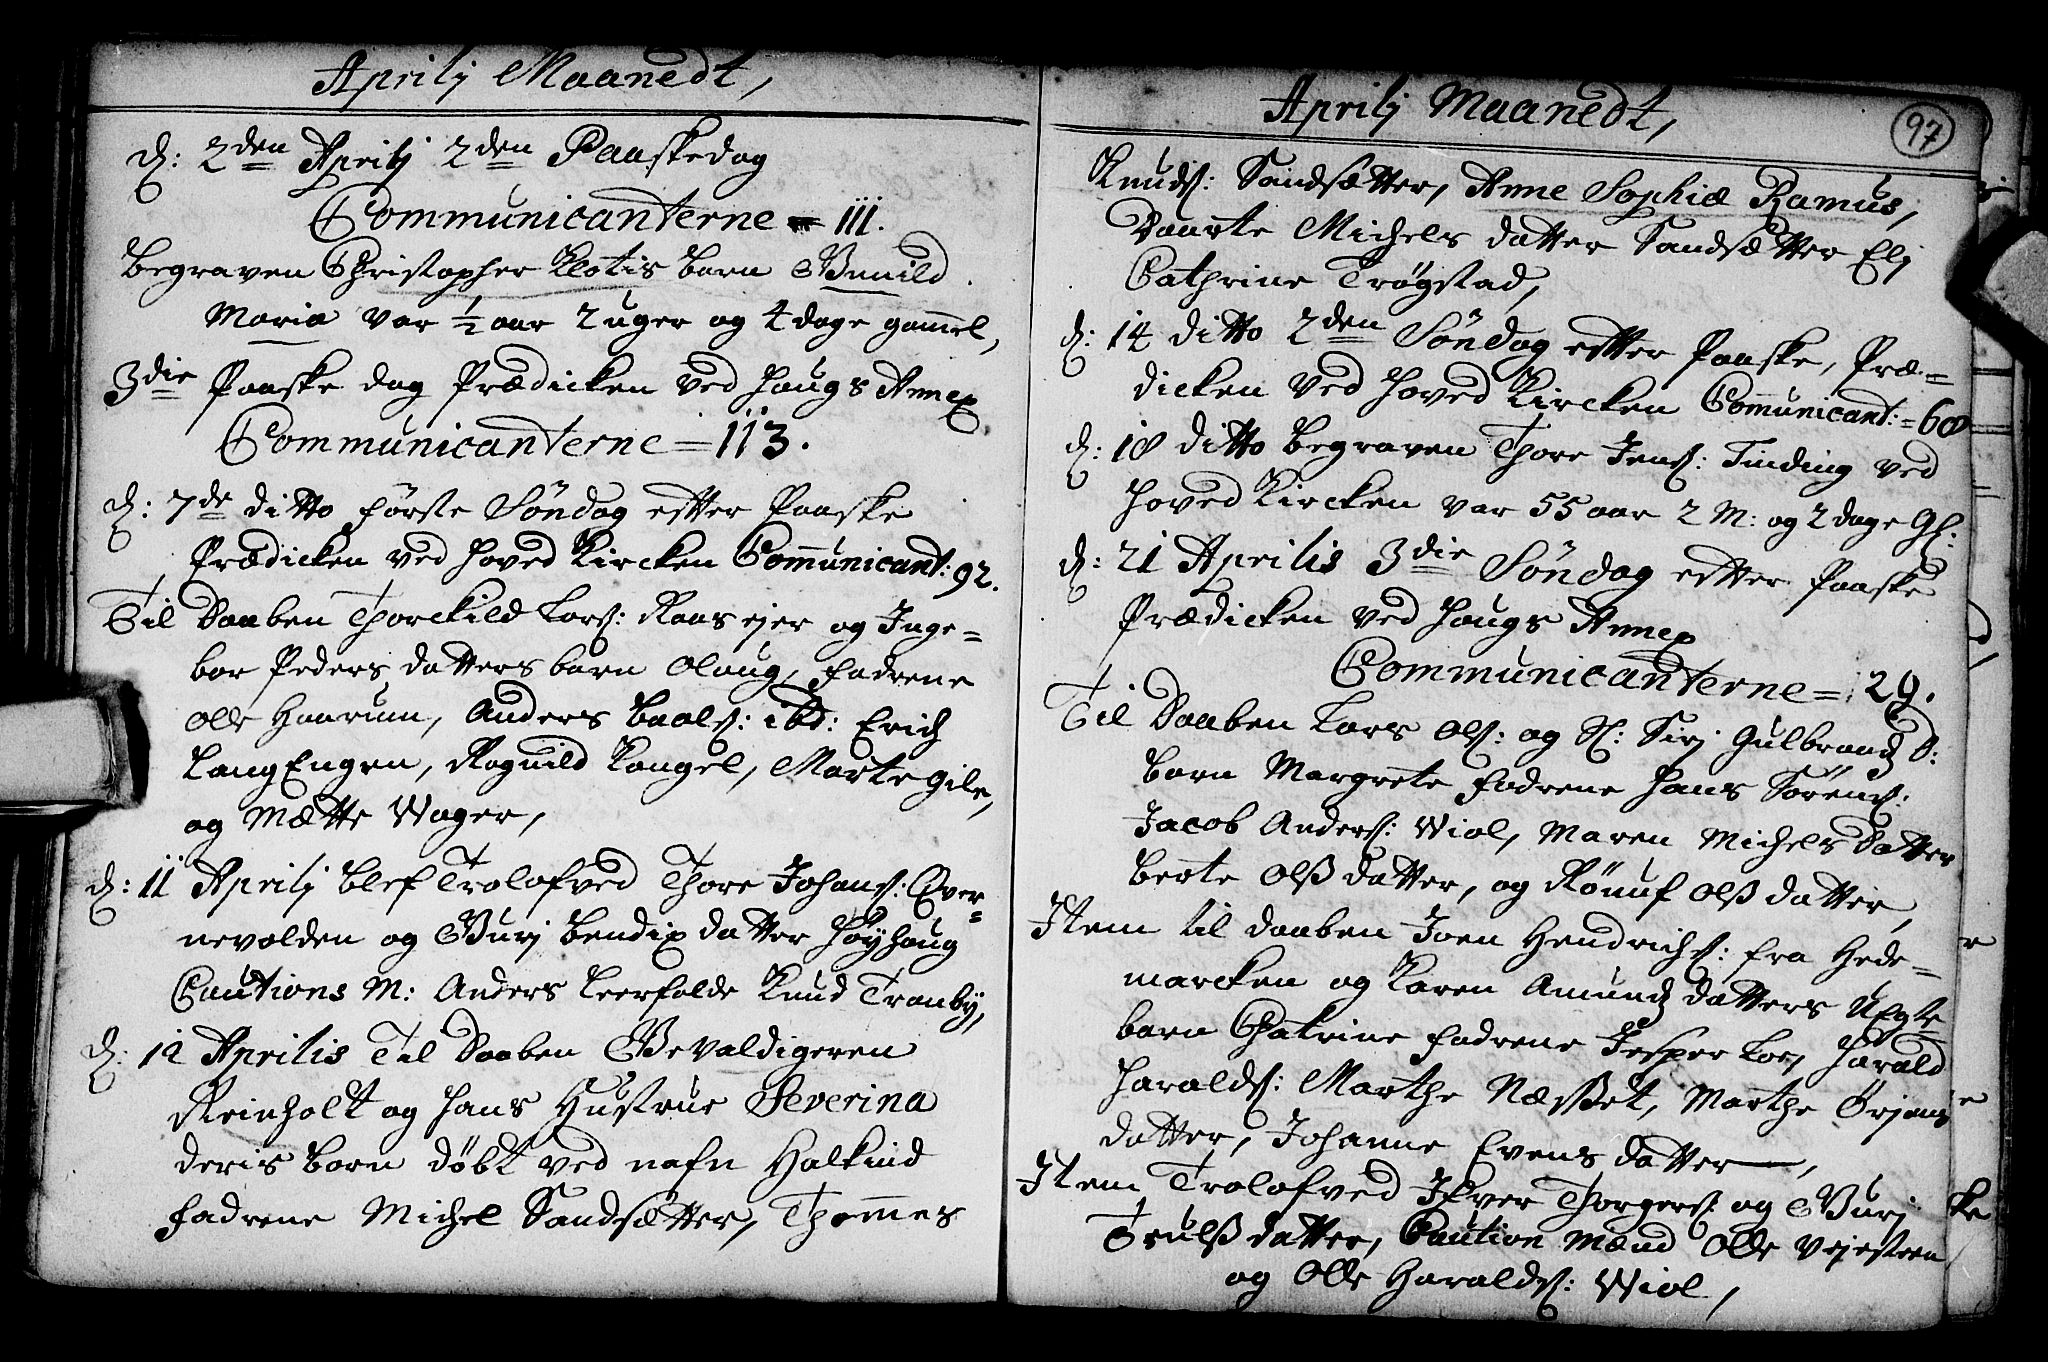 Aprilj Maanedt,
D: 2den Aprilj 2den Paaskedag
Communicanterne = 111.
Begraven Christopher Klotis barn Gunild
Maria var 1/2 aar 2 uger og 4 dage gammel,
3die Paaske dag Prædicken ved Haugs Annex
Communicanterne = 113.
D: 7de ditto første Søndag efter Paaske
Prædicken ved Hoved Kircken Communicant: 92.
Til Daaben Thorckild Lars: Raas ejer og Inge=
bor Peders datters barn Olaug, fadrene
Olle Haarum, Anders Baals: ibd: Erich
Lang Engen, Ragnild Kongel, Marte Gile,
og Mætte Wager,
D: 11 Aprilj blef Trolofved Thore Johans: Ever=
nevolden og Gurj Bendix datter Høyhoug
Cautions M: Anders Leerfalde Knud Tranby,
D: 12 Aprilis Til Daaben Gevaldigeren
Reinholt og Hans Hustrue Severina
deris barn døbt ved nafn Halkind
fadrene Michel Sandsætter, Thommes
Aprilj Maanedt,
97
Knuds: Sandsætter, Anne Sophie Ramus,
Maarte Michels datter Sandsætter Elj
Cathrine Trøgstad,
D: 14 ditto 2den Søndag efter Paaske, Præ=
dicken ved Hoved Kircken Communicant: = 60
D: 18 ditto begraven Thore Jens: Tinding ved
Hoved Kircken var 55 aar 2 M: og 2 dage Gl:
D: 21 Aprilis 3die Søndag efter Paaske
Prædicken ved Haugs Annex
Communicanterne = 29.
Til Daaben Lars Ols: og Sl: Sirj Gulbrands D:
barn Margrete fadrene Hans Sørens:
Jacob Anders: Wiol, Maren Michels Datter
Berte Olss datter, og Rønuf Olss datter,
Item til daaben Joen Hendrichs: fra Hede=
marcken og Karen Amunds datters Uægte
barn Chatrine fadrene Jesper Lorj Harald
Haralds: Marthe Næsset, Marthe Ørjans
datter, Johanne Evens datter,
Item Trolofved Ifver Thorgers: og Gurj
Trulss datter, Caution mænd Olle Vejesteen
og Olle Haralds: Wiol,